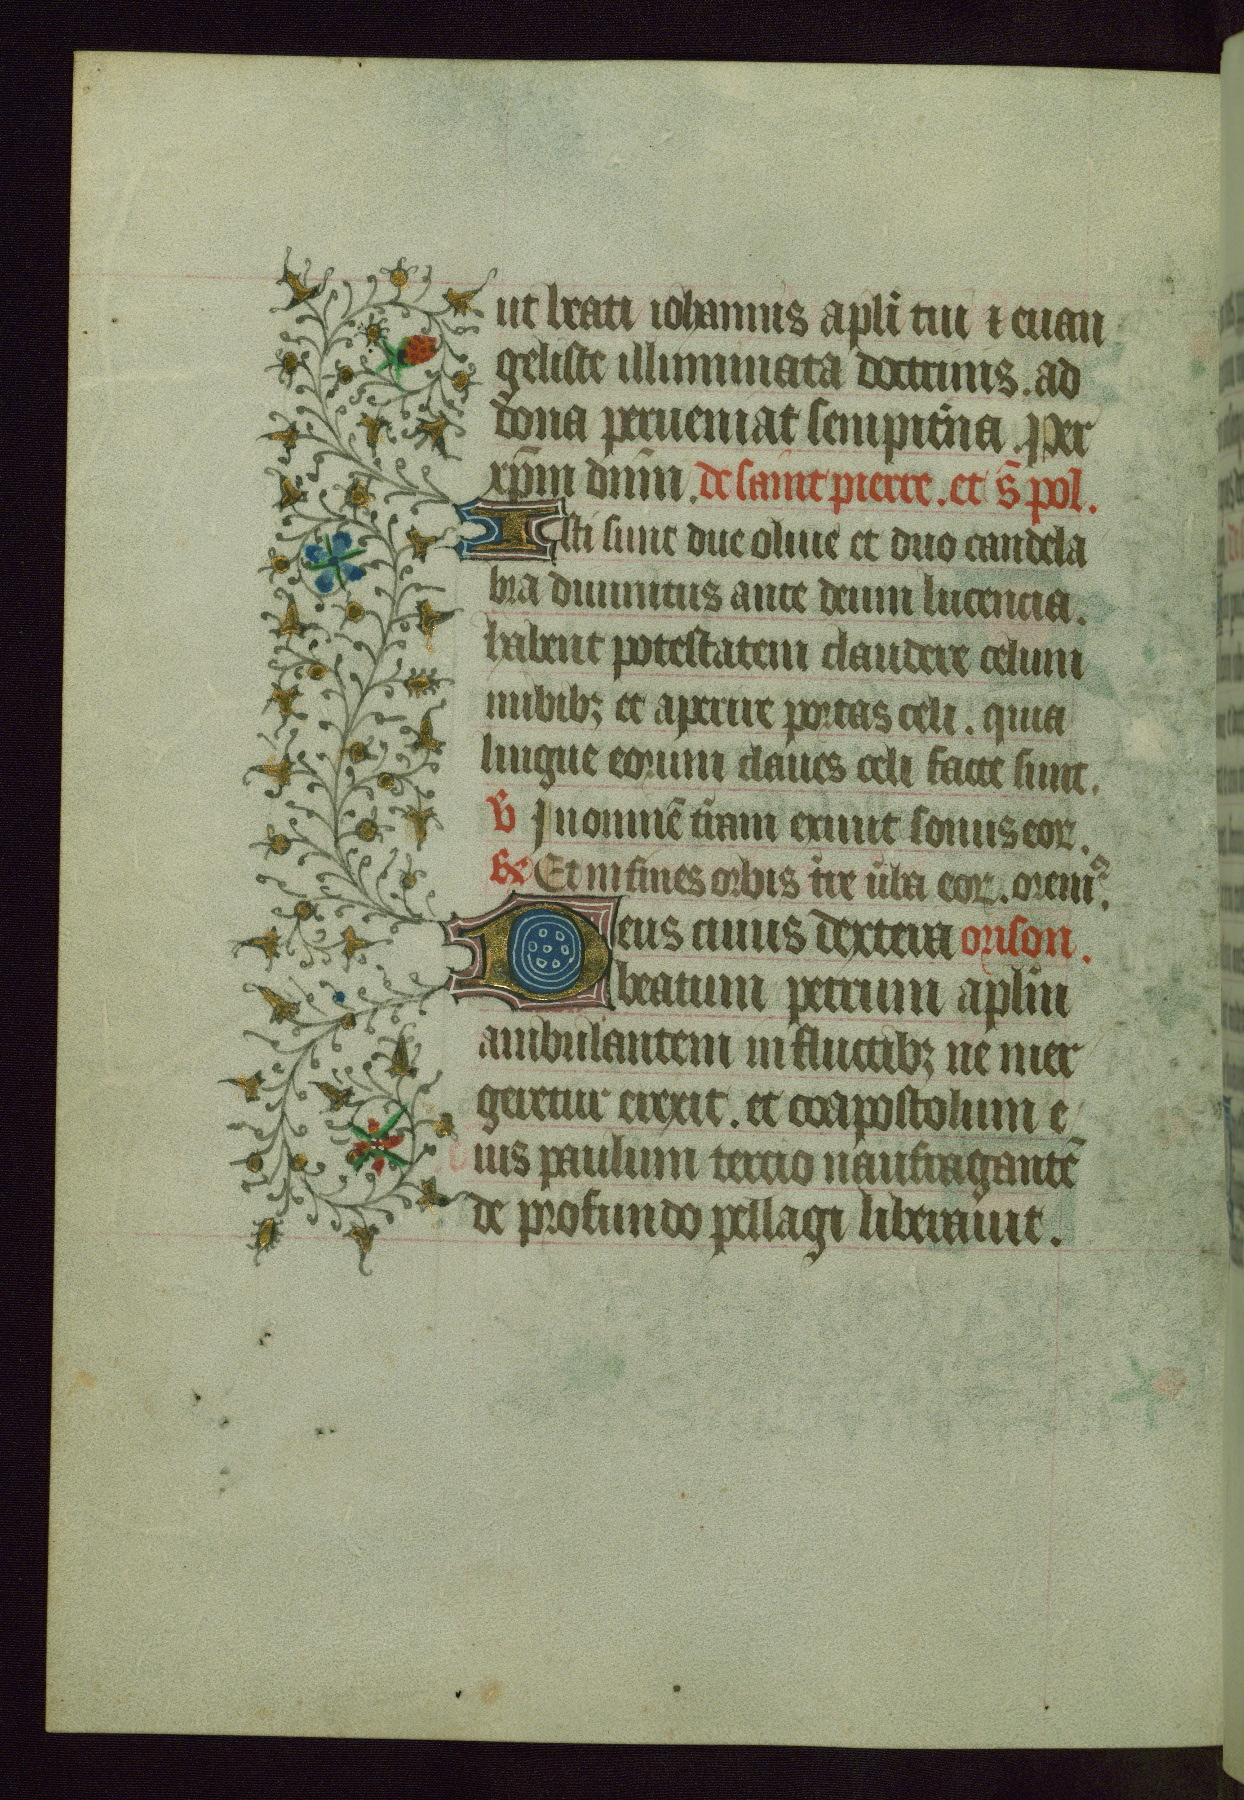 ut beati iohannis apl̄i tui ⁊ euan
geliste illuminata doctrinis . ad
dona perueniat sempit̄na . Per
xp̄m dn̄m . de saint pierre . et s̄ pol .
Isti sunt due oliue et duo candela
bra diuinitus ante deum lucencia .
habent potestatem claudere celum
nubibꝫ et aperire portas celi . quia
lingue eorum claues celi facte sunt .
℣ In omnē t̄ram exiuit sonus eoꝝ .
℟ Et in fines orbis t̄re u̅ba eoꝝ . oremꝰ .
Deus cuius dextera orison .
beatum petrum apl̄m
ambulantem in fluctibꝫ ne mer
geretur erexit . et coapostolum e
ius paulum tercio naufragantē
de profundo pellagi liberauit .